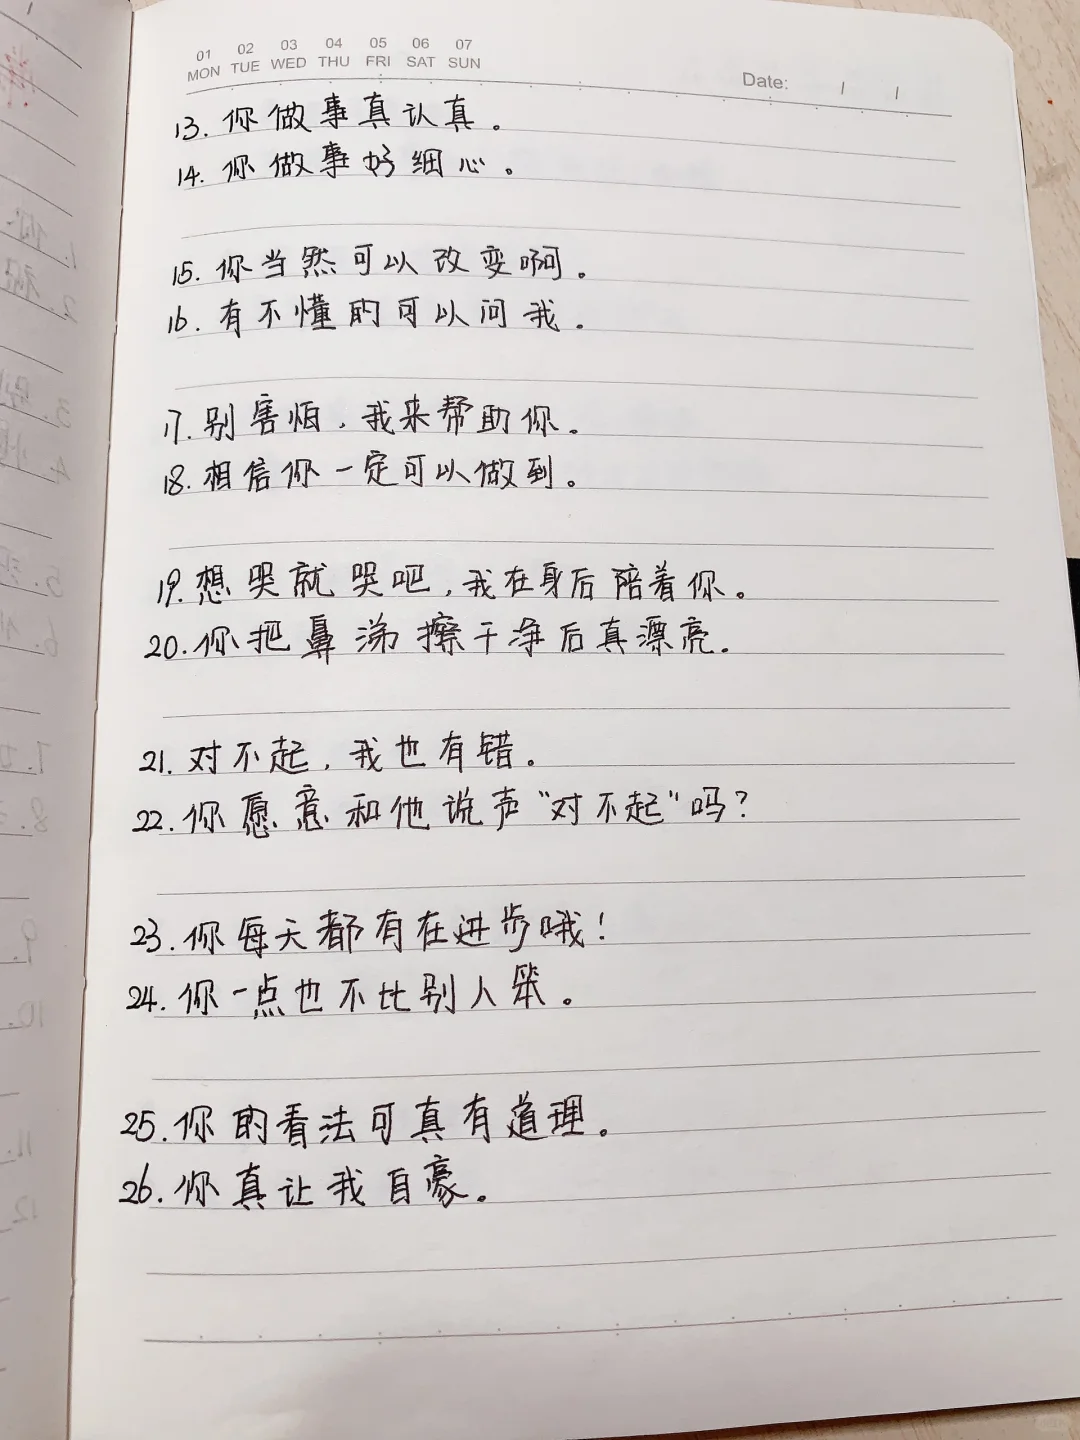 01 02 03 04 05 06 07
MON TUE WED THU FRI SAT SUN
Date: / /
13. 你做事真认真。
14. 你做事好细心。
15. 你当然可以改变啊。
16. 有不懂的可以问我。
17. 别害怕,我来帮助你。
18. 相信你一定可以做到。
19. 想哭就哭吧,我在身后陪着你。
20. 你把鼻涕擦干净后真漂亮.
21. 对不起,我也有错。
22. 你愿意和他说声“对不起”吗?
23. 你每天都有在进步哦!
24. 你一点也不比别人笨。
25. 你的看法可真有道理。
26. 你真让我自豪。